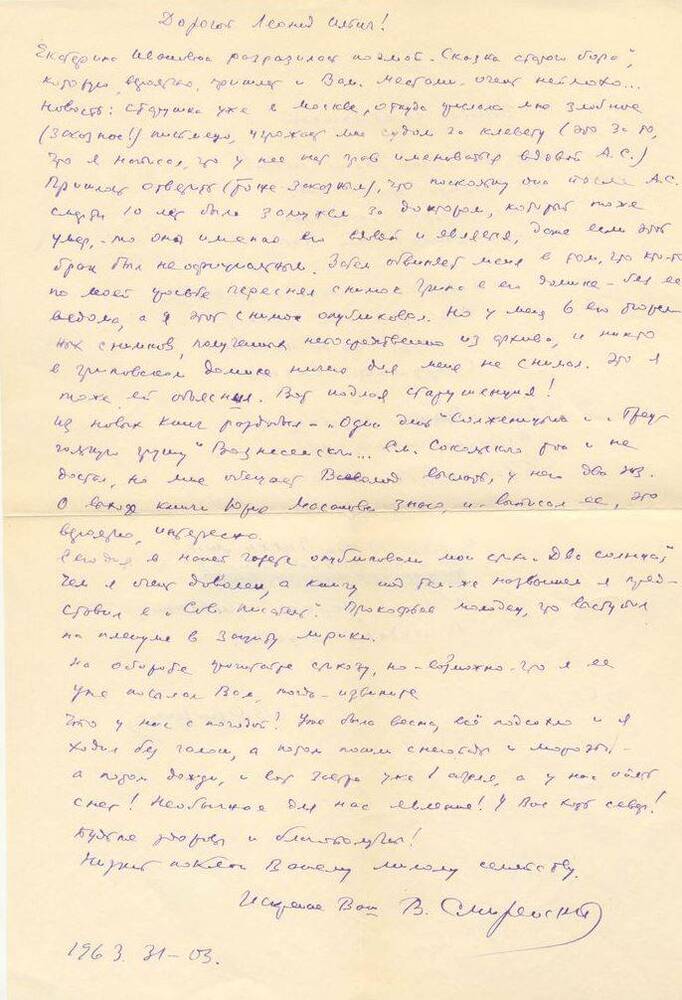 Дорогой Леонид Ильич!
Екатерина Ивановна разразилась поэмой "Сказка старого бора",
которую, вероятно, пришлет и Вам. Местами очень неплохо...
Новость: старушка уже в Москве, откуда прислала мне злобное
(заказное!) письмецо, угрожает мне судом за клевету (это за то,
что я написал, что у нее нет прав именоваться вдовой А.С.)
Пришлось ответить (тоже заказным), что поскольку она после А.С.
10 лет была замужем за доктором, который тоже
умер, - то она именно его вдовой и является, даже если этот
брак был неофициальным. Затем обвиняет меня в том, что кто-то
по моей просьбе переснял снимок Грина в его домике - без ее
ведома, а я этот снимок опубликовал. Но у меня 6 его
снимков, полученных непосредственно из архива, и никто
в гриновском домике ничего для меня не снимал. Это я
тоже ей объяснил. Вот подлая старушенция!
Из новых книг раздобыл - "Один день" Солженицына и "Треу-
гольную грушу" Вознесенского... См. Сокольского тоже и не
достал, но мне обещает Всеволод выслать, у него два экз.
О выходе книги Юрия знаю, и выписал ее, это
вероятно, интересно.
Сегодня в нашей газете опубликовали мои стихи "Два солнца",
чем я очень доволен, а книгу под тем же названием я пред-
ставил в "Сов. писатель". Прокофьев молодец, что выступил
на пленуме в защиту лирики.
На обороте прочитайте, но - возможно - что я ее
уже посылал Вам, тогда - извините
Что у нас с погодой! Уже была весна, всё подсохло и я
ходил без галош, а потом пошли снегопады и морозы -
а потом дожди, и вот завтра уже 1 апреля, а у нас опять
снег! Необычное для нас явление! У Вас хоть север!
Будьте здоровы и благополучны!
Низкий поклон Вашему милому семейству.
Искренне Ваш В. Смиренский
1963. 31-03.